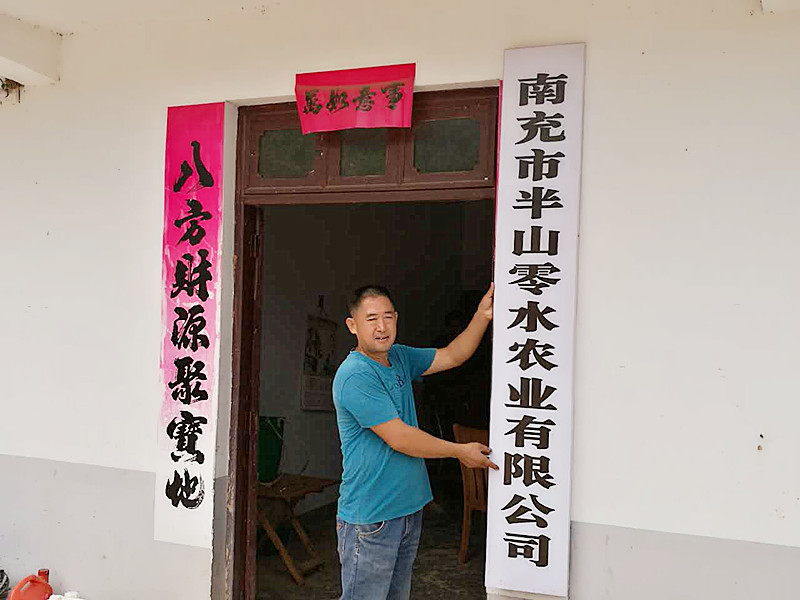 萬如意事
八方财源聚寳地
南充市半山零水农业有限公司